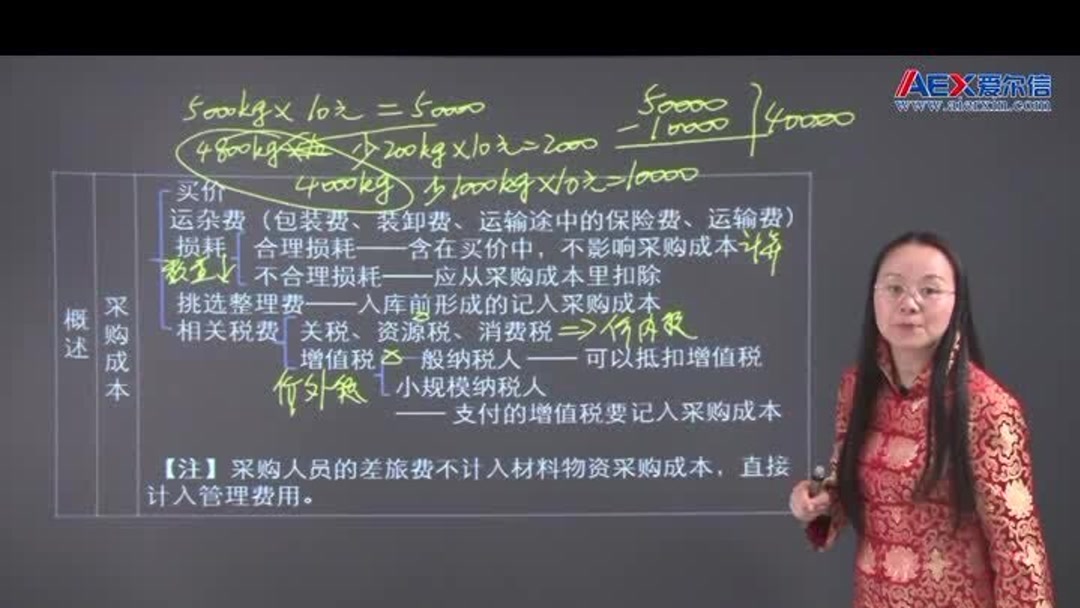 AEX爱尔信
www.aierxin.com
5000kg×10元=50000
50000
-10000
40000
4800kg 少200kg×10元=2000
4000kg 少1000kg×10元=10000
概述
采购成本
买价
运杂费（包装费、装卸费、运输途中的保险费、运输费）
损耗 合理损耗——含在买价中，不影响采购成本计算
数量↓ 不合理损耗——应从采购成本里扣除
挑选整理费——入库前形成的记入采购成本
相关税费 关税、资源税、消费税 => 价内税
增值税 × 一般纳税人——可以抵扣增值税
价外税 小规模纳税人
——支付的增值税要记入采购成本
【注】采购人员的差旅费不计入材料物资采购成本，直接
计入管理费用。